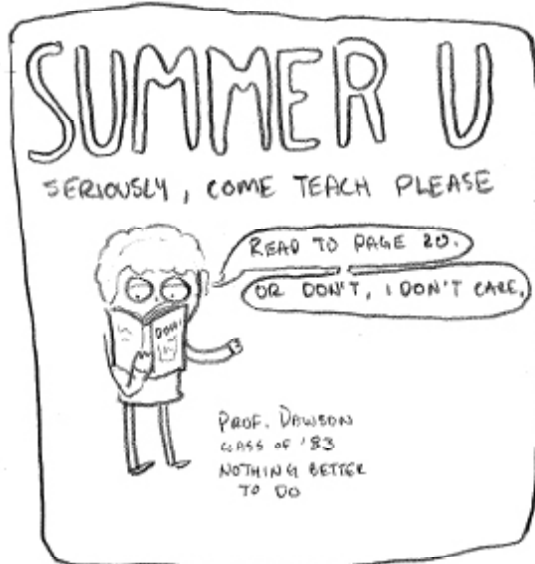 SUMMER U
SERIOUSLY, COME TEACH PLEASE
READ TO PAGE 20.
OR DON'T, I DON'T CARE.
PROF. DAWSON
CLASS OF '83
NOTHING BETTER
TO DO